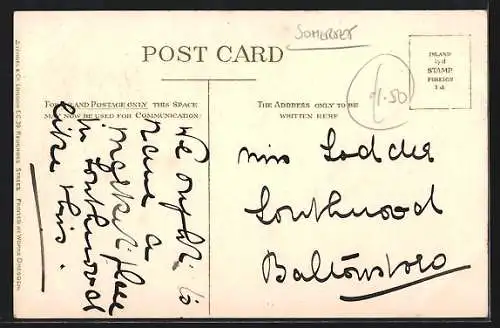 SOMERSET
POST CARD
INLAND
½d
STAMP
FOREIGN
1d
1.50
FOR INLAND POSTAGE ONLY THIS SPACE
MAY NOW BE USED FOR COMMUNICATION
THE ADDRESS ONLY TO BE
WRITTEN HERE
We ought to
have a
Market Place
in Southwood
like this.
Miss
Southwood
Baltonsboro
STREET. PRINTED AT WORKS DRESDEN.